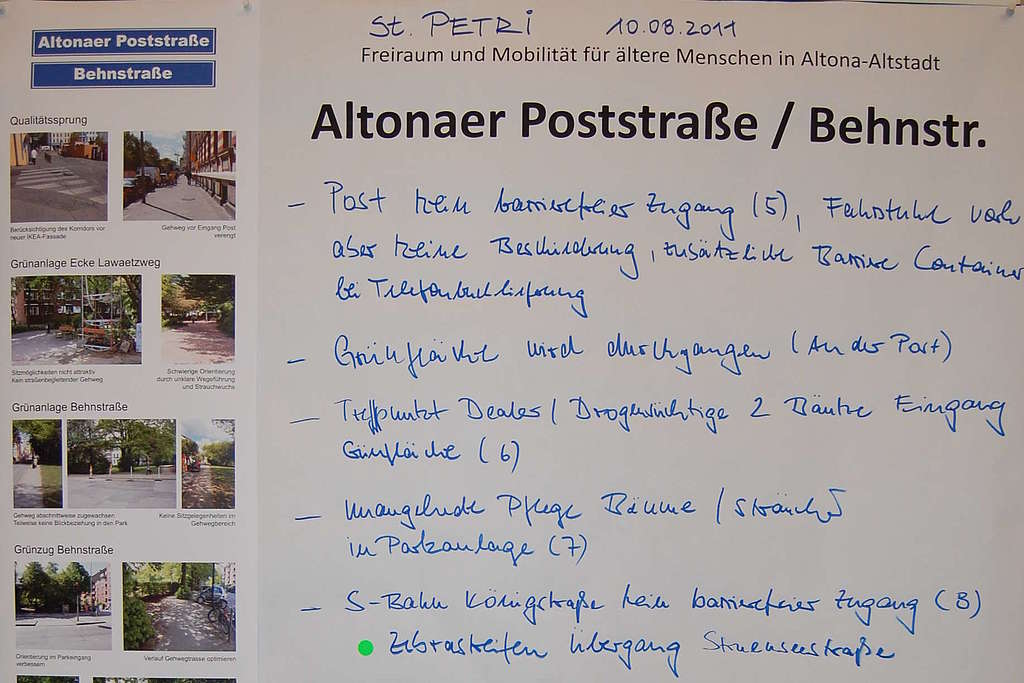 Altonaer Poststraße
Behnstraße
Qualitätssprung
Berücksichtigung des Korridors vor
neuer IKEA-Fassade
Gehweg vor Eingang Post
verengt
Grünanlage Ecke Lawaetzweg
Sitzmöglichkeiten nicht attraktiv
Kein straßenbegleitender Gehweg
Schwierige Orientierung
durch unklare Wegeführung
und Strauchwuchs
Grünanlage Behnstraße
Gehweg abschnittweise zugewachsen
Teilweise keine Blickbeziehung in den Park
Keine Sitzgelegenheiten im
Gehwegbereich
Grünzug Behnstraße
Orientierung im Parkeingang
verbessern
Verlauf Gehwegtrasse optimieren
St. PETRI 10.08.2011
Freiraum und Mobilität für ältere Menschen in Altona-Altstadt
Altonaer Poststraße / Behnstr.
– Post kein barrierefreier Zugang (5), Fahrstuhl vorh
aber keine Beschilderung, zusätzliche Barriere Container
bei Telefonbuchlieferung
– Grünfläche wird durchgangen (An der Post)
– Treffpunkt Dealer / Drogensüchtige 2 Bänke Eingang
Günfläche (6)
– mangelnde Pflege Bäume / Sträucher
in Parkanlage (7)
– S-Bahn Königstraße kein barrierefreier Zugang (8)
• Zebrastreifen Übergang Struenseestraße